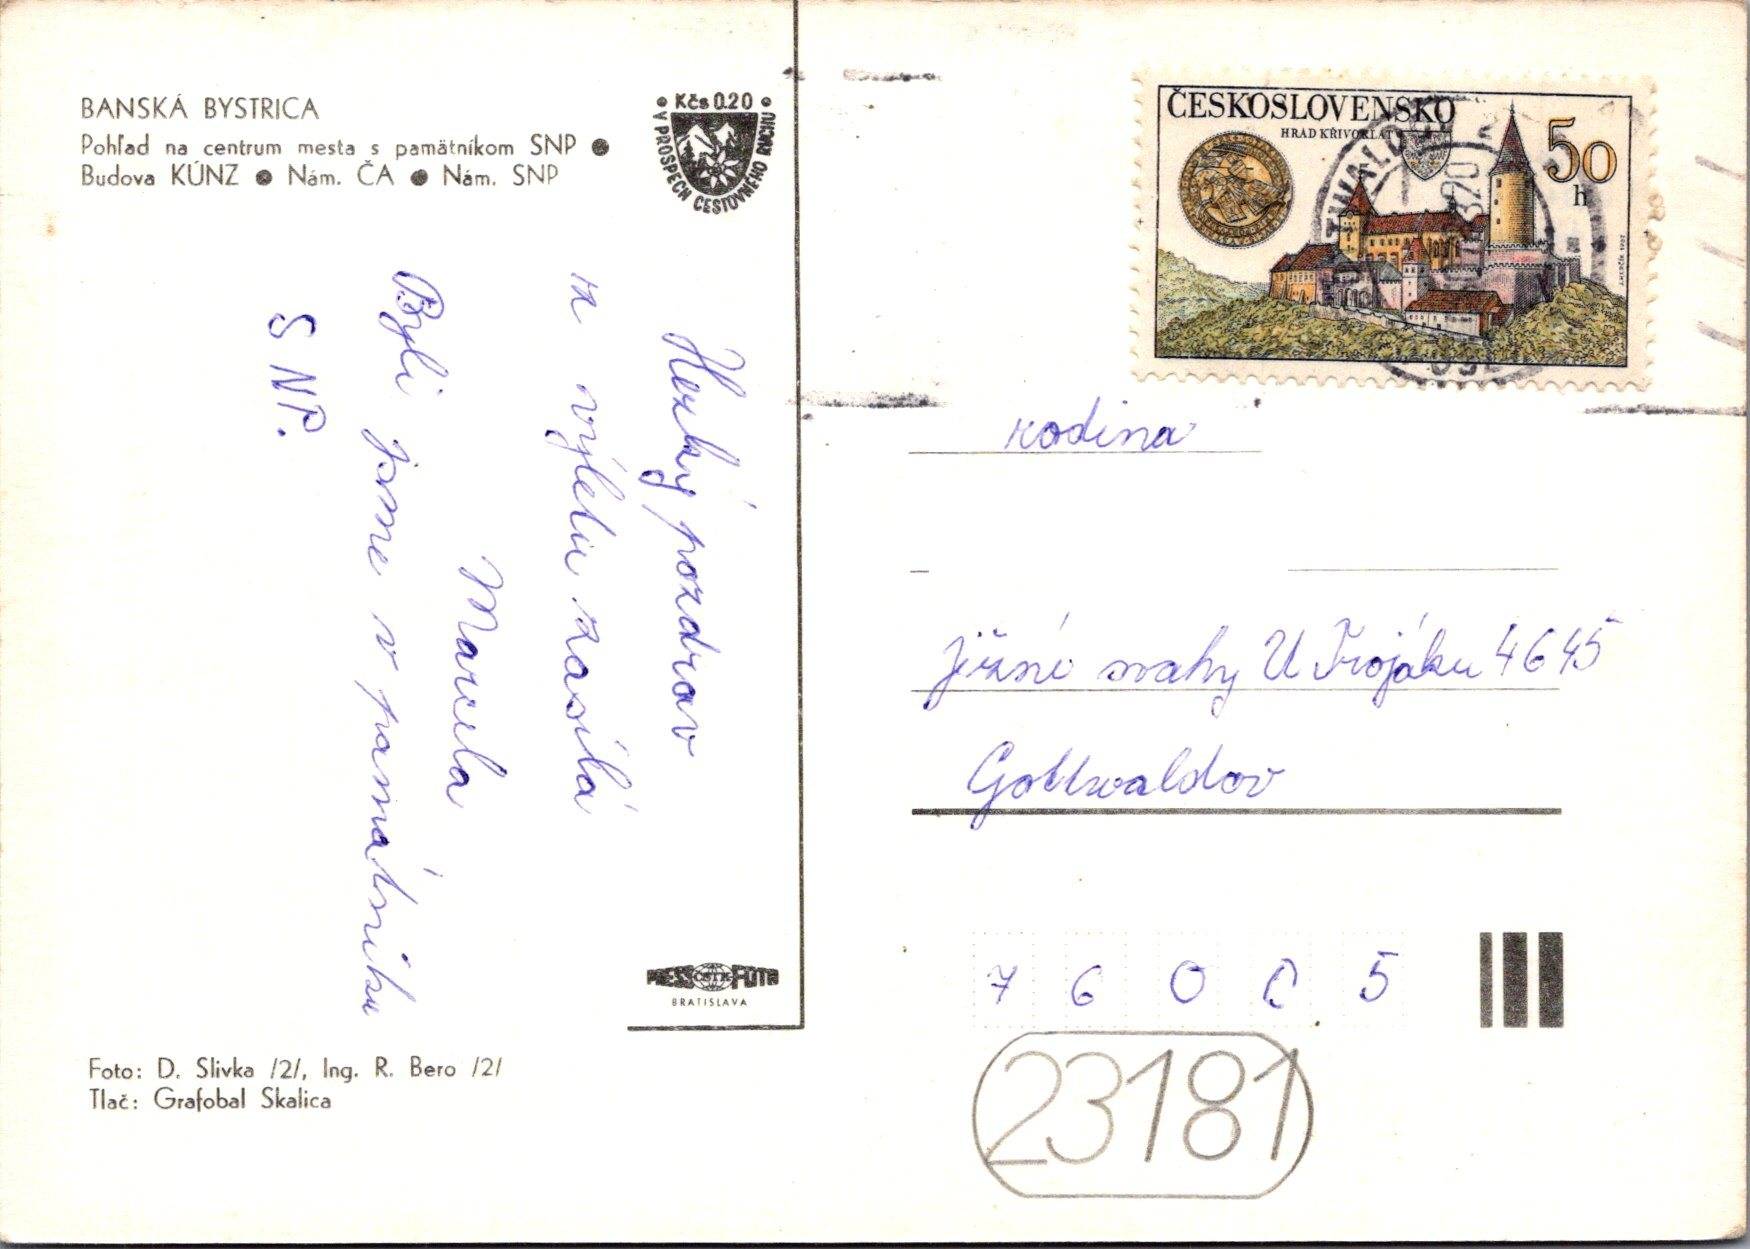 BANSKÁ BYSTRICA
Pohľad na centrum mesta s pamätníkom SNP ●
Budova KÚNZ ● Nám. ČA ● Nám. SNP
● Kčs 0.20 ●
V PROSPECH CESTOVNÉHO RUCHU
Hezký pozdrav
z výletu zasílá
Marcela
Byli jsme v památníku
SNP.
PRESSFOTO
ČSTK
BRATISLAVA
Foto: D. Slivka /2/, Ing. R. Bero /2/
Tlač: Grafobal Skalica
ČESKOSLOVENSKO
HRAD KŘIVOKLÁT
50
h
rodina
Jižní svahy U Trojáku 4645
Gottwaldov
76005
23181